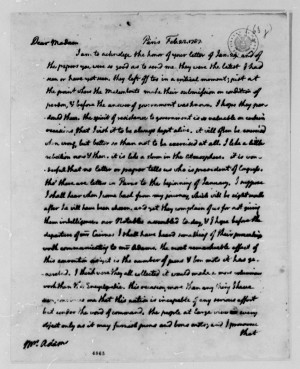 Dear Madam Paris Feb. 22. 1787.
I am to acknolege the honor of your letter of Jan. and of
the papers you were so good as to send me. they were the latest I had
seen or have yet seen. they left off too in a critical moment; just at
the point where the Malcontents make their submission on condition of
pardon, & before the answer of government was known. I hope they par-
doned them. the spirit of resistance to government is so valuable on certain
occasions, that I wish it to be always kept alive. it will often be exercised
when wrong, but better so than not to be exercised at all. I like a little
rebellion now & then. it is like a storm in the Atmosphere. it is won-
derful that no letter or paper tells us who is president of Congress,
tho' there are letters in Paris to the beginning of January. I suppose
I shall hear when I come back from my journey, which will be eight months
after he will have been chosen. and yet they complain of us for not giving
them intelligence. our Notables assembled to-day, & I hope before the
departure of mr Cairnes I shall have heard something of their proceedings
worth communicating to mr Adams. the most remarkeable effect of
this convention as yet is the number of puns & bon mots it has ge-
nerated. I think were they all collected it would make a more voluminous
work than the Encyclopedie. this occasion, more than any thing I have
seen, convinces me that this nation is incapable of any serious effort
but under the word of command. the people at large view every
object only as it may furnish puns and bon mots; and I pronounce
that
Mrs. Adams